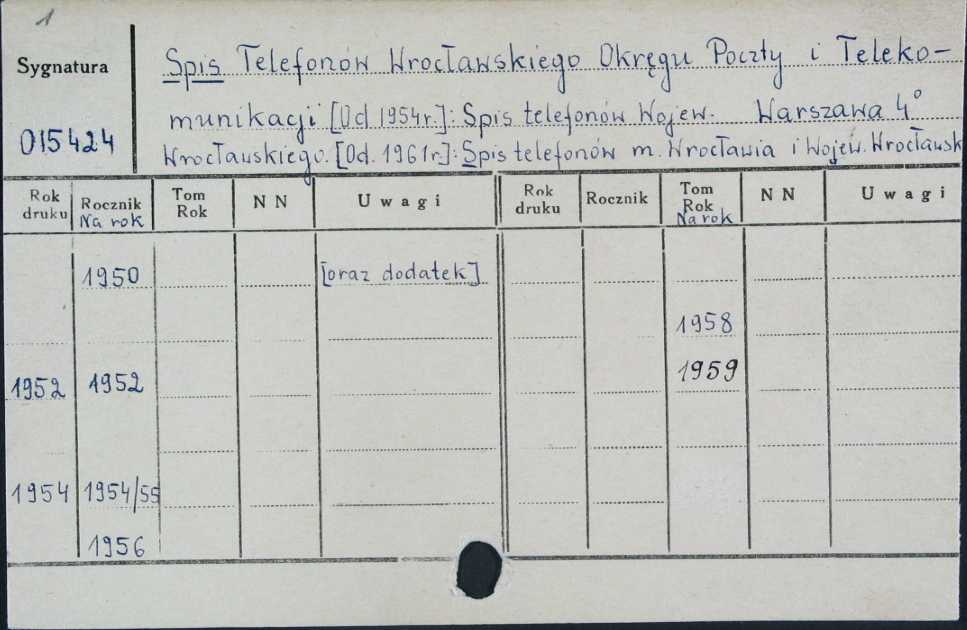 1
Sygnatura
015424
Spis Telefonów Wrocławskiego Okręgu Poczty i Teleko-
munikacji [Od 1954r.]: Spis telefonów Wojew. Warszawa 4°
Wrocławskiego. [Od. 1961r]: Spis telefonów m. Wrocławia i Wojew. Wrocławsk
Rok druku Rocznik Na rok Tom Rok NN Uwagi Rok druku Rocznik Tom Rok Na rok NN Uwagi
1950 [oraz dodatek]
1958
1952 1952 1959
1954 1954/55
1956